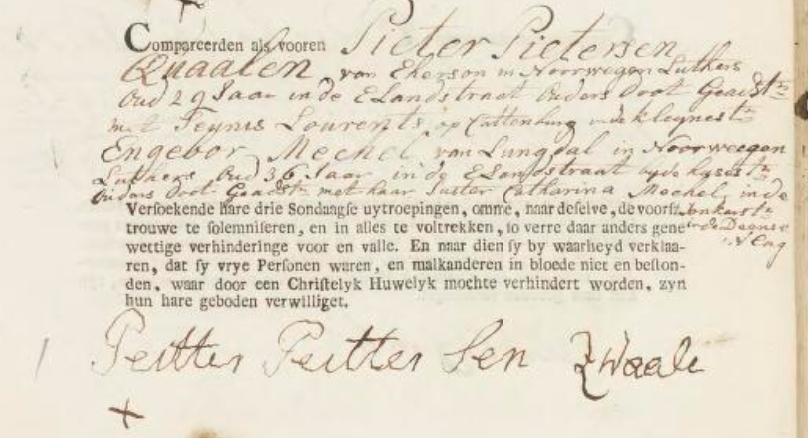 Compareerden als vooren Pieter Pietersen
Quaalen van Ekerson in Noorwegen Luthers
Oud 29 Jaar in de Elandstraat Ouders Doot Geadst.n
met Teunis Lourents op Cattenburg inde kleyne st.n
Engebor Mechel van Lungdal in Noorweegen
Luthers Oud 36 Jaar in de Elandstraat
Ouders Doot Geadst.n met haar suster Catharina Mechel in de
Jonkerst.n
in de Deense
Verſoekende hare drie Sondaagſe uytroepingen, omme, naar deſelve, de voorſz.
trouwe te ſolemniſeren, en in alles te voltrekken, ſo verre daar anders gene
wettige verhinderinge voor en valle. En naar dien ſy by waarheyd verklaa-
ren, dat ſy vrye Perſonen waren, en malkanderen in bloede niet en beſton-
den, waar door een Chriſtelyk Huwelyk mochte verhindert worden, zyn
hun hare geboden verwilliget.
Peitter Peitter Sen Zwaale